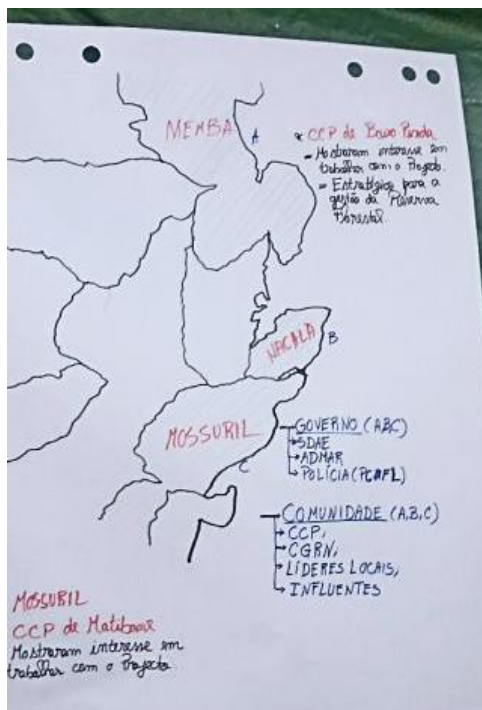 MEMBA
A
* CCP de
- Mostraram interesse em
trabalhar com o Projecto.
- Estratégias para a
gestão da Reserva
Florestal.
NACALA
B
MOSSURIL
C
GOVERNO (ABC)
SDAE
ADMAR
POLÍCIA
COMUNIDADE (A,B,C)
CCP,
CGRN,
LÍDERES LOCAIS,
INFLUENTES
MOSSURIL
CCP de
Mostraram interesse em
trabalhar com o Projecto